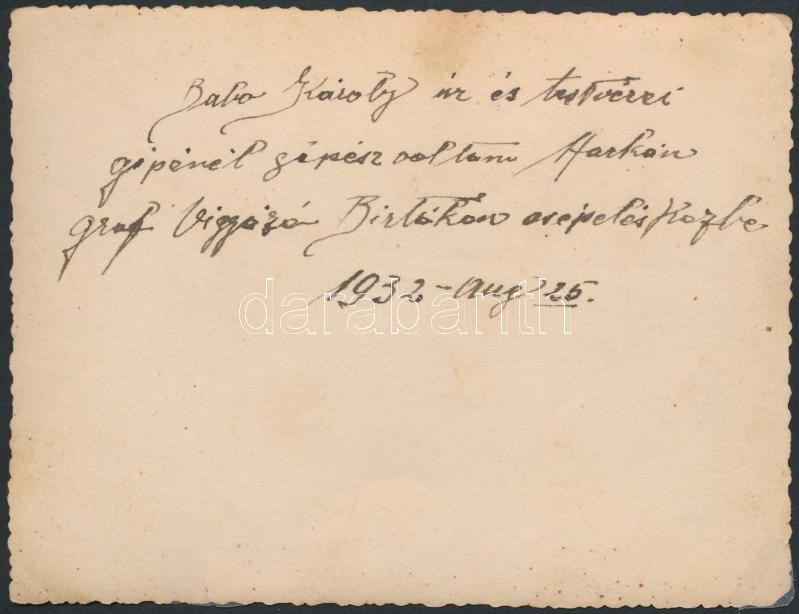 Babo Károly úr és testvérei
gépénél gépész voltam Harkán
graf Vigyázó Birtokán csépelés közbe
1932-aug 25.
darabanth